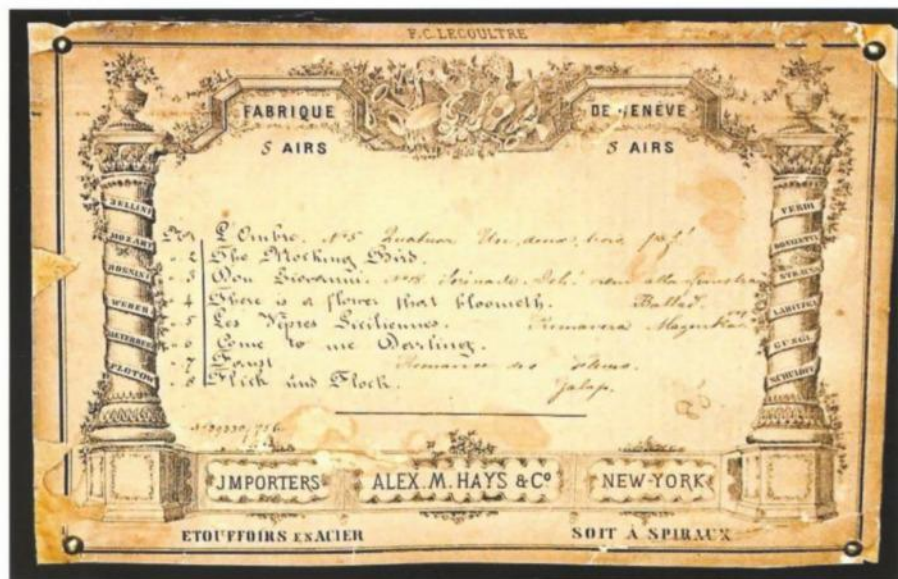 F. C. LECOULTRE
FABRIQUE DE GENÈVE
8 AIRS 8 AIRS
BELLINI
MOZART
ROSSINI
WEBER
MEYERBEER
FLOTOW
VERDI
DONIZETTI
STRAUSS
LABITZKI
GUNGL
SCHULHOF
No 1 L'Ombre. No 5 Quatuor Un, deux, trois
" 2 The Mocking Bird.
" 3 Don Giovanni. Sérénade. Deh! vieni alla finestra
" 4 There is a flower that bloometh. Ballad.
" 5 Les Vêpres Siciliennes. Primavera
" 6 Come to me Darling.
" 7 Faust Romance des
" 8 Flick und Flock. Galop.
JMPORTERS ALEX. M. HAYS & Co NEW-YORK
ETOUFFOIRS EN ACIER SOIT À SPIRAUX